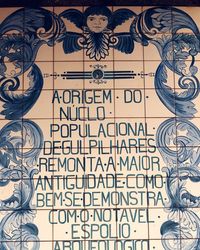 A·ORIGEM·DO·
NÚCLO·
POPULACIONAL·
DE·GULPILHARES·
REMONTA·A·MAIOR·
ANTIGUIDADE·COMO·
BEM·SE·DEMONSTRA·
COM·O·NOTAVEL·
ESPOLIO·
ARQUEOLÓGICO·